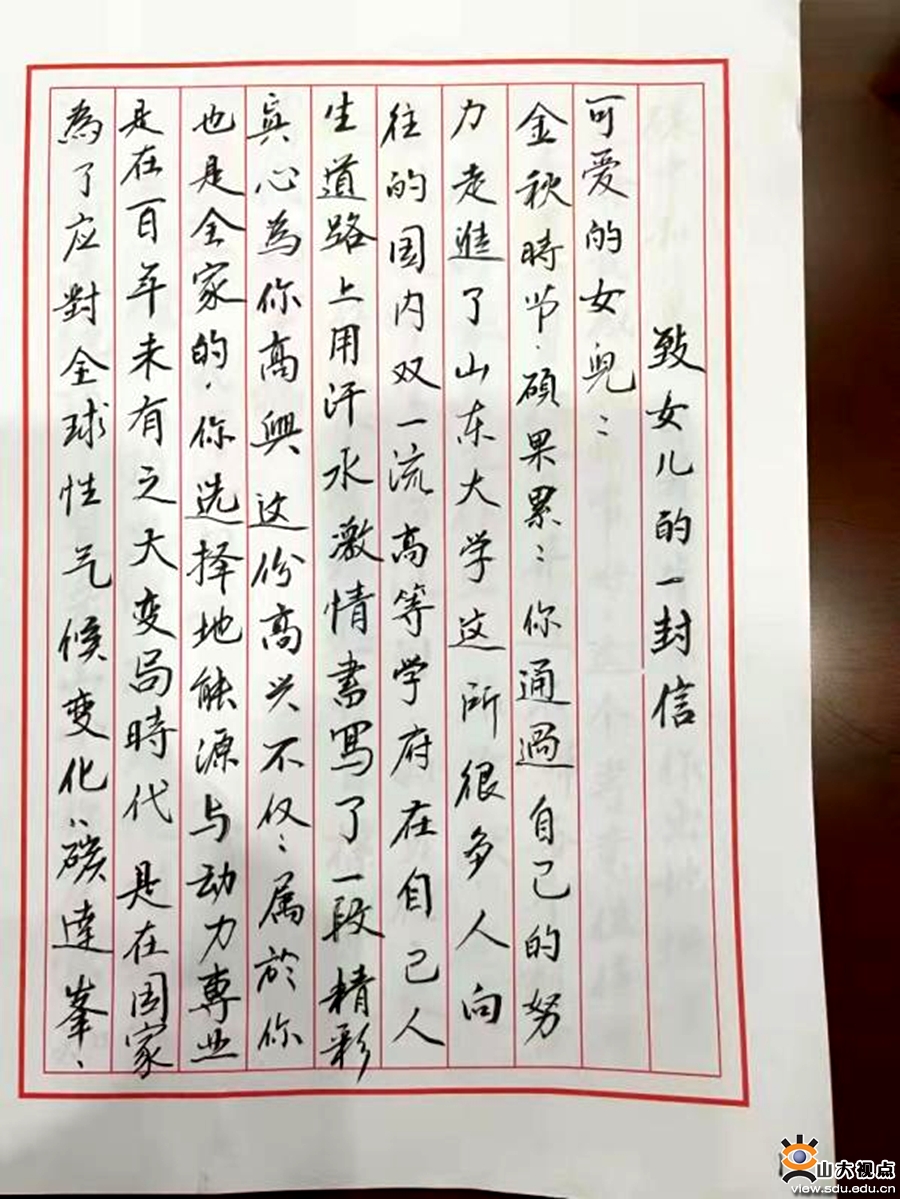 致女儿的一封信
可爱的女兒：
金秋時节.碩果累：你通過自己的努
力走進了山东大学这所很多人向
往的国内双一流高等学府在自己人
生道路上用汗水激情書写了一段精彩
真心為你高興这份高兴不仅：属於你
也是全家的.你选择地能源与动力專业
是在百年未有之大变局時代是在国家
為了应對全球性气候变化“碳達峯、
山大视点
view.sdu.edu.cn